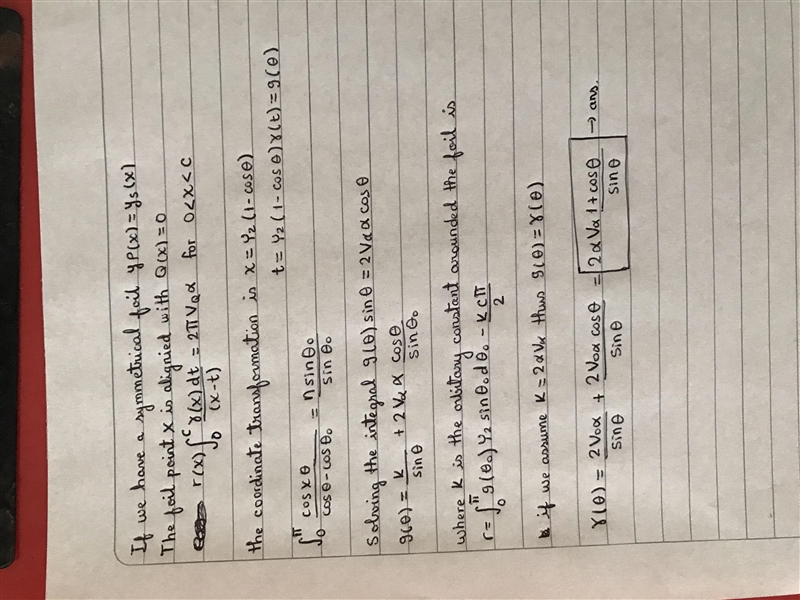 If we have a symmetrical foil yP(x) = ys(x)
The foil point x is alignied with Q(x) = 0
r(x) ∫₀ᶜ γ(x)dt/(x-t) = 2πV₀α for 0<x<c
the coordinate transformation is x = Y₂(1-cosθ)
t = Y₂(1-cosθ)γ(t) = g(θ)
∫₀^π cosxθ/(cosθ-cosθ₀) = πsinθ₀/sinθ₀
Solving the integral g(θ)sinθ = 2Vαα cosθ
g(θ) = K/sinθ + 2Vαα cosθ/sinθ₀
where K is the orbitary constant arounded the foil is
r = ∫₀^π g(θ₀)Y₂ sinθ₀dθ₀ - KCπ/2
if we assume K = 2αVα thus g(θ) = γ(θ)
γ(θ) = 2V₀α/sinθ + 2V₀α cosθ/sinθ = 2αVα (1+cosθ)/sinθ → ans.